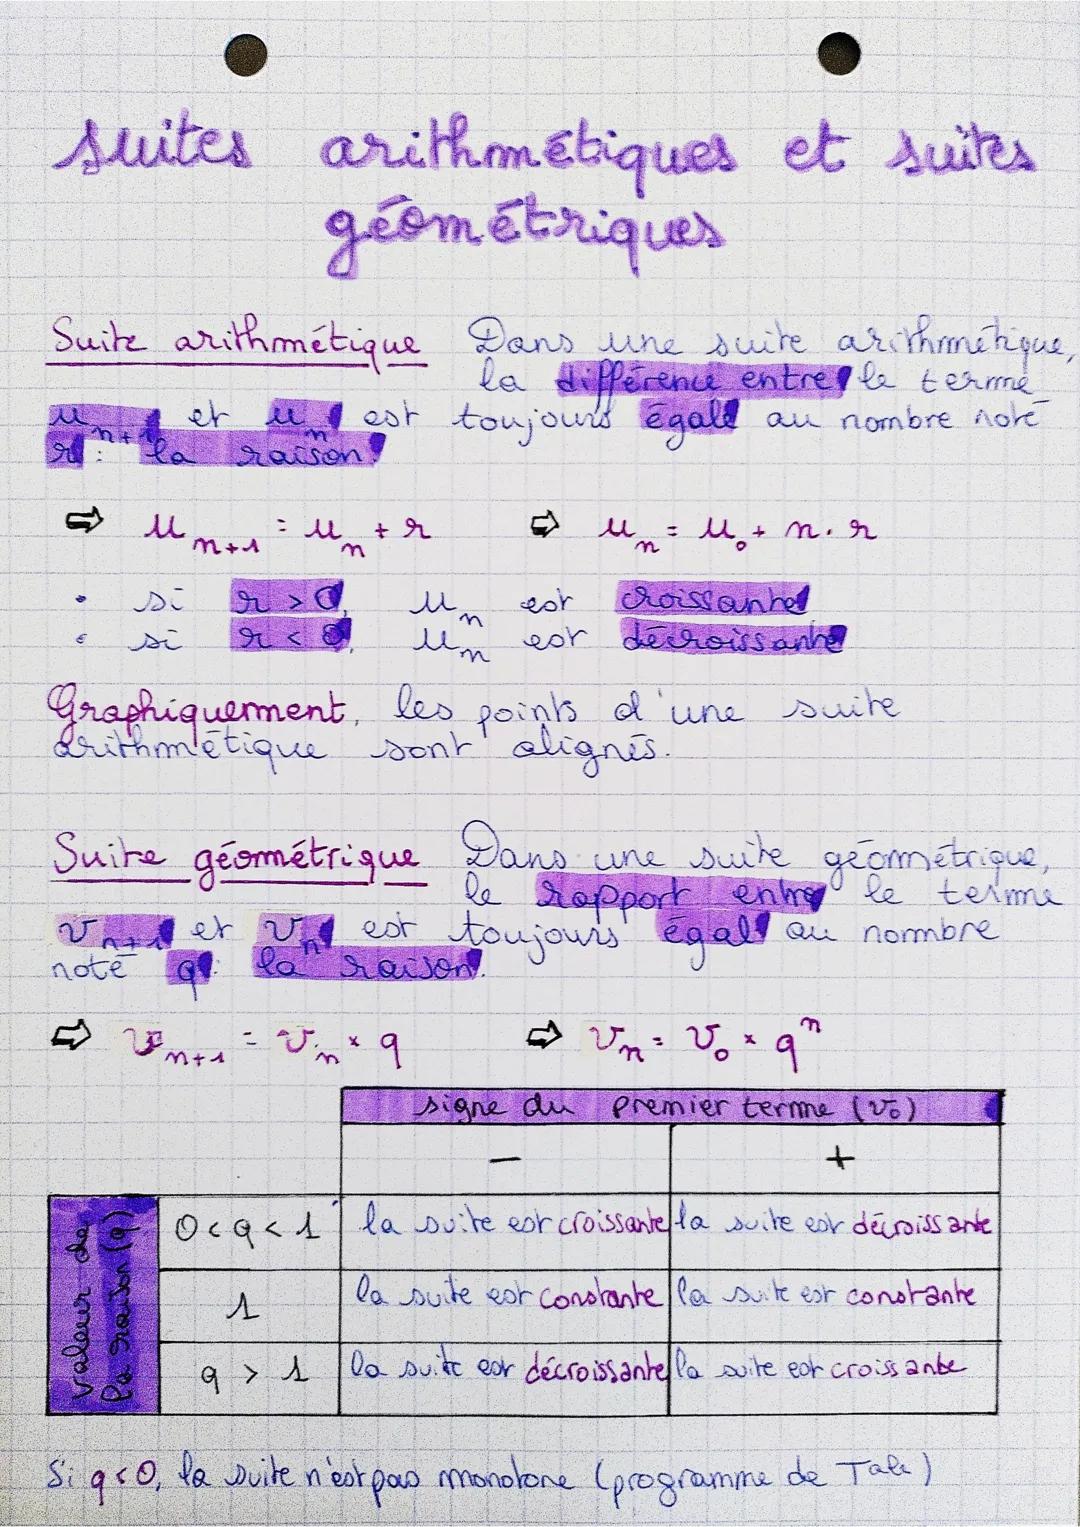 suites arithmétiques et suites
géométriques
Suite arithmétique Dans une suite arithmétique,
la différence entre le terme
uₙ₊₁ et uₙ est toujours égale au nombre noté
r : la raison.
⇨ uₙ₊₁ = uₙ + r ⇨ uₙ = u₀ + n. r
• si r > 0, uₙ est croissante
• si r < 0, uₙ est décroissante
Graphiquement, les points d'une suite
arithmétique sont alignés.
Suite géométrique Dans une suite géométrique,
le rapport entre le terme
vₙ₊₁ et vₙ est toujours égal au nombre
noté q : la raison.
⇨ vₙ₊₁ = vₙ × q ⇨ vₙ = v₀ × qⁿ
signe du premier terme (v₀)
− +
valeur de
la raison (q)
0 < q < 1 la suite est croissante la suite est décroissante
1 la suite est constante la suite est constante
q > 1 la suite est décroissante la suite est croissante
Si q < 0, la suite n'est pas monotone (programme de Tale)